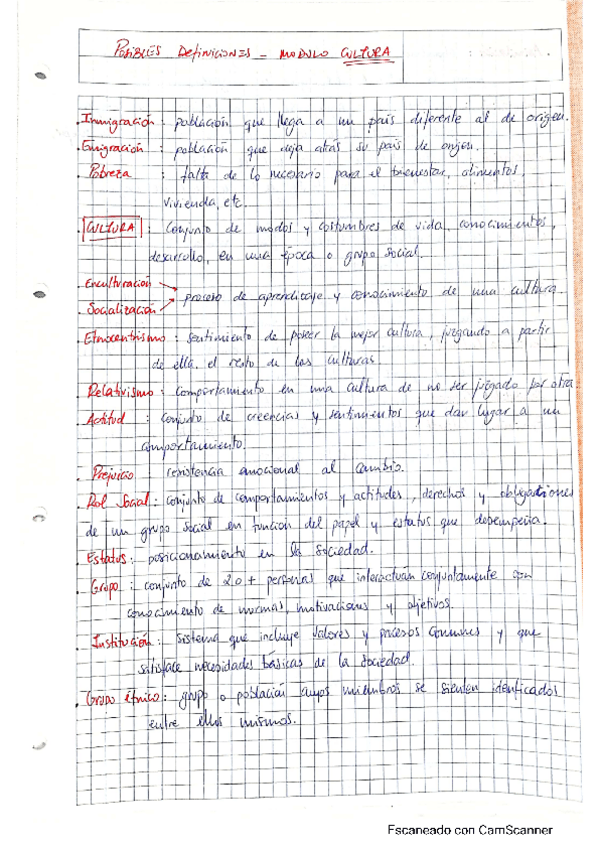 POSIBLES DEFINICIONES - MODULO CULTURA
. Inmigración : población que llega a un país diferente al de origen.
. Emigración : población que deja atrás su país de origen.
. Pobreza : falta de lo necesario para el bienestar, alimentos,
vivienda, etc.
. CULTURA : Conjunto de modos y costumbres de vida, conocimientos,
desarrollo, en una época o grupo social.
. Enculturación
. Socialización
proceso de aprendizaje y conocimiento de una cultura.
. Etnocentrismo : sentimiento de poseer la mejor cultura, juzgando a partir
de ella, el resto de las culturas.
. Relativismo : comportamiento en una cultura de no ser juzgado por otra.
. Actitud : conjunto de creencias y sentimientos que dan lugar a un
comportamiento.
. Prejuicio : resistencia emocional al cambio.
. Rol Social : conjunto de comportamientos y actitudes, derechos y obligaciones
de un grupo social en función del papel y estatus que desempeña.
. Estatus : posicionamiento en la sociedad.
. Grupo : conjunto de 2 o + personas que interactúan conjuntamente con
conocimiento de normas, motivaciones y objetivos.
. Institución : Sistema que incluye valores y procesos comunes y que
satisface necesidades básicas de la Sociedad.
. Grupo étnico : grupo o población cuyos miembros se sienten identificados
entre ellos mismos.
Escaneado con CamScanner